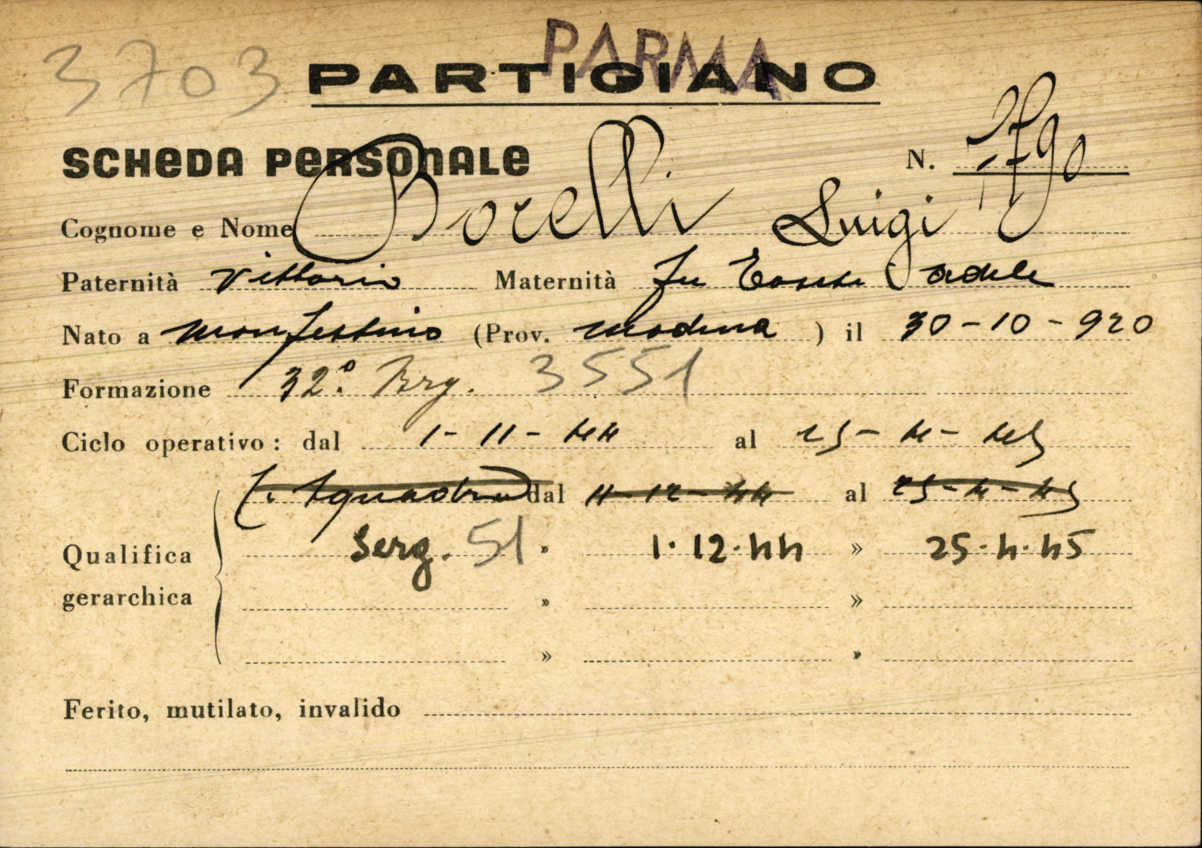 3703 PARMA
PARTIGIANO
SCHEDA PERSONALE N. 1790
Cognome e Nome Borelli Luigi
Paternità Vittorio Maternità fu adele
Nato a Monfestino (Prov. Modena ) il 30-10-920
Formazione 32° Brg. 3551
Ciclo operativo: dal 1-11-44 al 25-4-45
C. Squadra dal 11-12-44 al 25-4-45
Serg. 51 » 1.12.44 » 25.4.45
Qualifica
gerarchica » »
» »
Ferito, mutilato, invalido